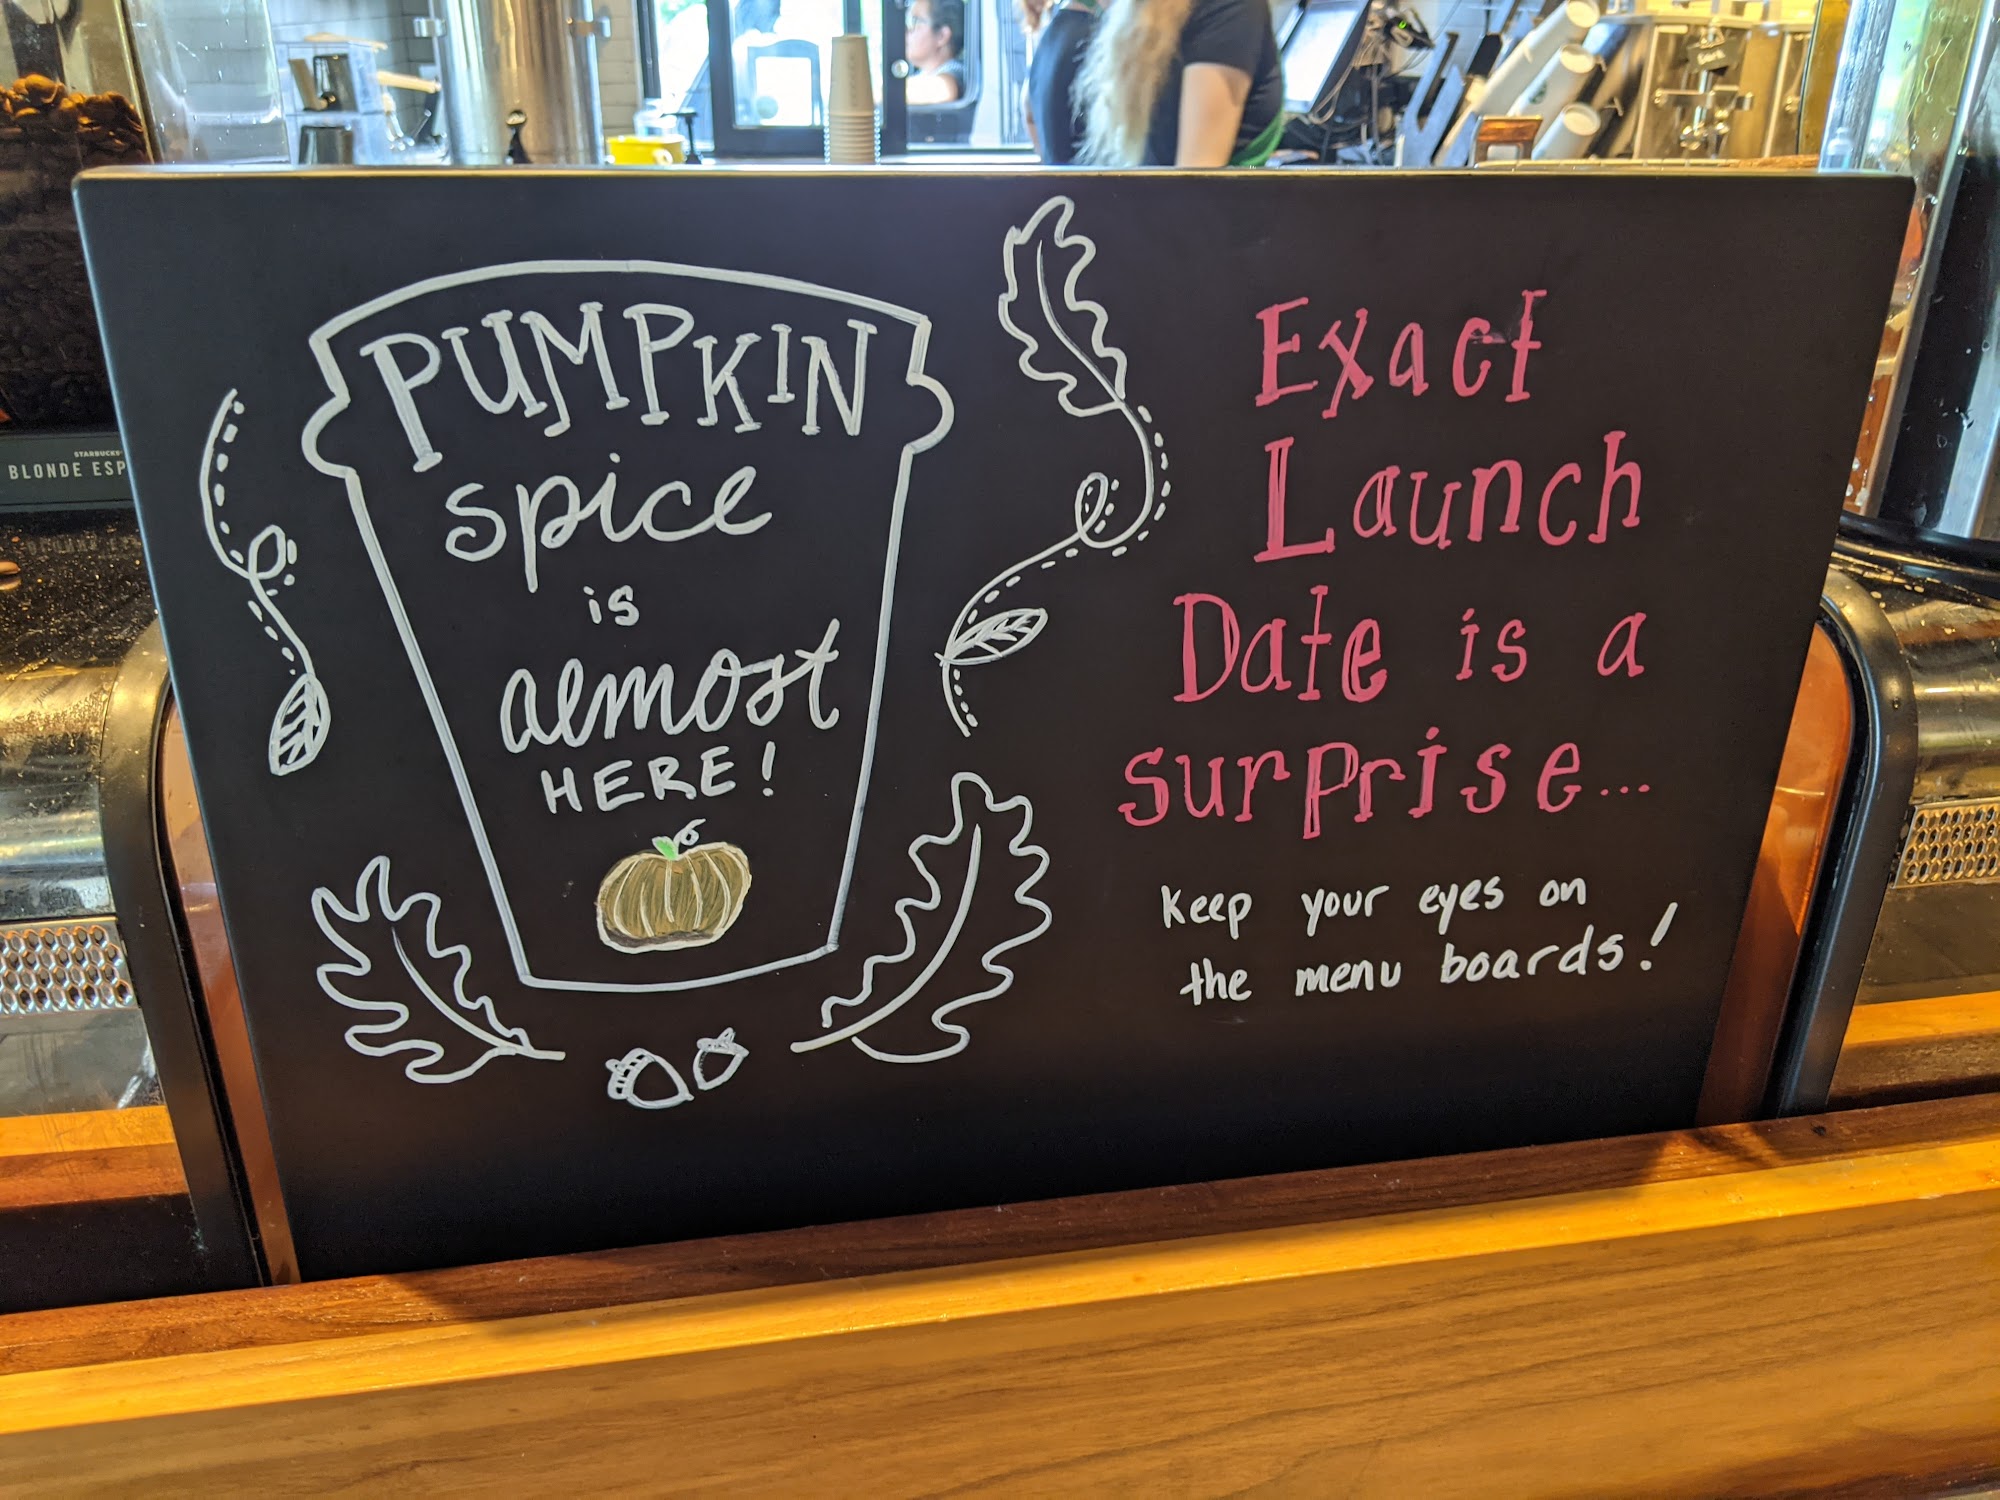 PUMPKIN
spice
is
almost
HERE!
Exact
Launch
Date is a
surprise...
Keep your eyes on
the menu boards!
STARBUCKS
BLONDE ESP